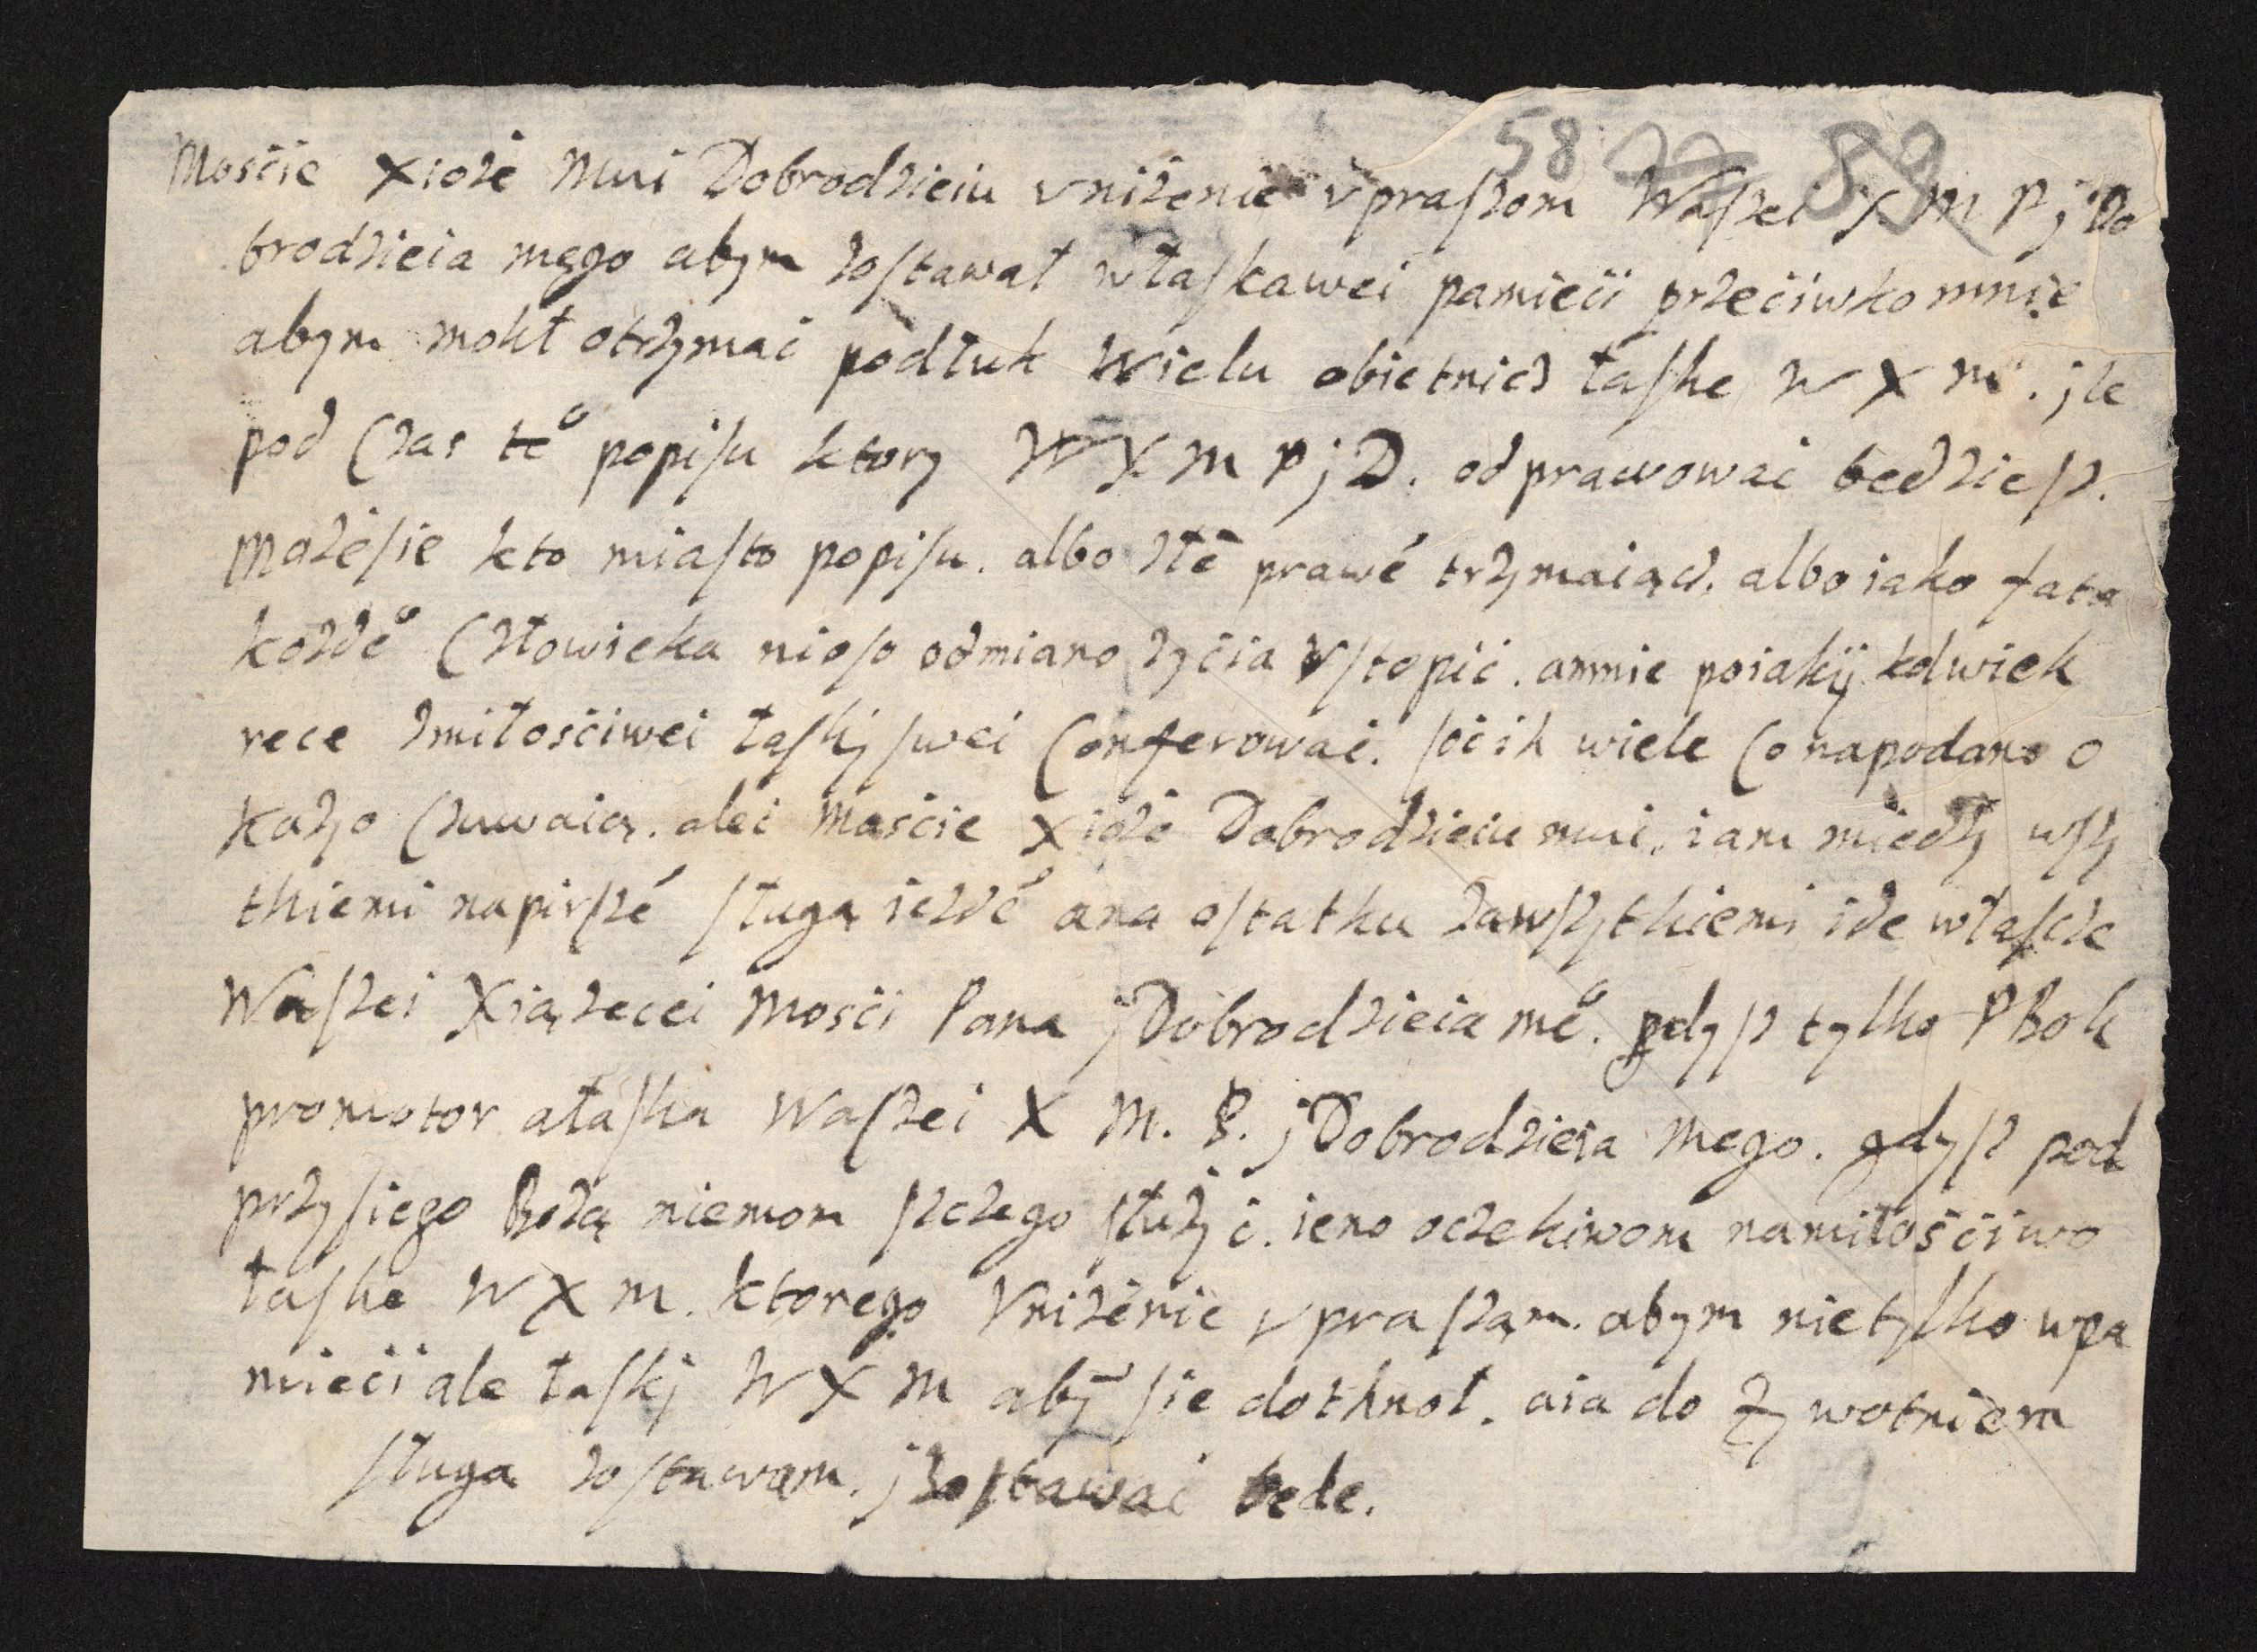 58 77 89
Mosċie Xiożė Mui Dobrodzieiu vniżenie vpraſzom Waſzei X M P j Do
brodzieia mego abym zoſtawał właſkawei pamiėċi przeċiwko mnie
abym mokł otrzymać podłuk wielu obietnicz łaſke W X M. jle
pod Czas te° popiſu ktory W X M P j D. odprawowac bedzieſz.
możeſie kto miaſto popiſu. albo złe prawe trzymaiącz. albo iako fata
kożde° Człowieka nioſo odmiano zyċia vſtopić. amnie poiakij kolwiek
rece zmiłosċiwei łaſkj ſwei Conferowac. ſoċ ih wiele Co napodano o
kazyo Czuwaią. aleć Mosċie Xiożė Dobrodzieiu mui. iam miedzy wſzy
tkiemi napirſzė ſługą iezdė ana oſtatku zawſzytkiemi ide właſcze
Waſzei Xiążecei Mosċi Pana j Dobrodzieia me°. gdyſz tylko P Bok
promotor ałaſka Waſzei X M. P. j Dobrodzieia mego. gdyſz pod
przyſiego Bożą niemom ſzczego ſłużyċ. ieno oczekiwom namiłosċiwo
łaſke W X M. ktorego Vniżėnie vpraſzam. abym nietylko wpa
mieċi ale łaſkj W X M abym ſie dotknoł. aia do Zywotniem
ſługa zoſtawam. j zoſtawać bede.